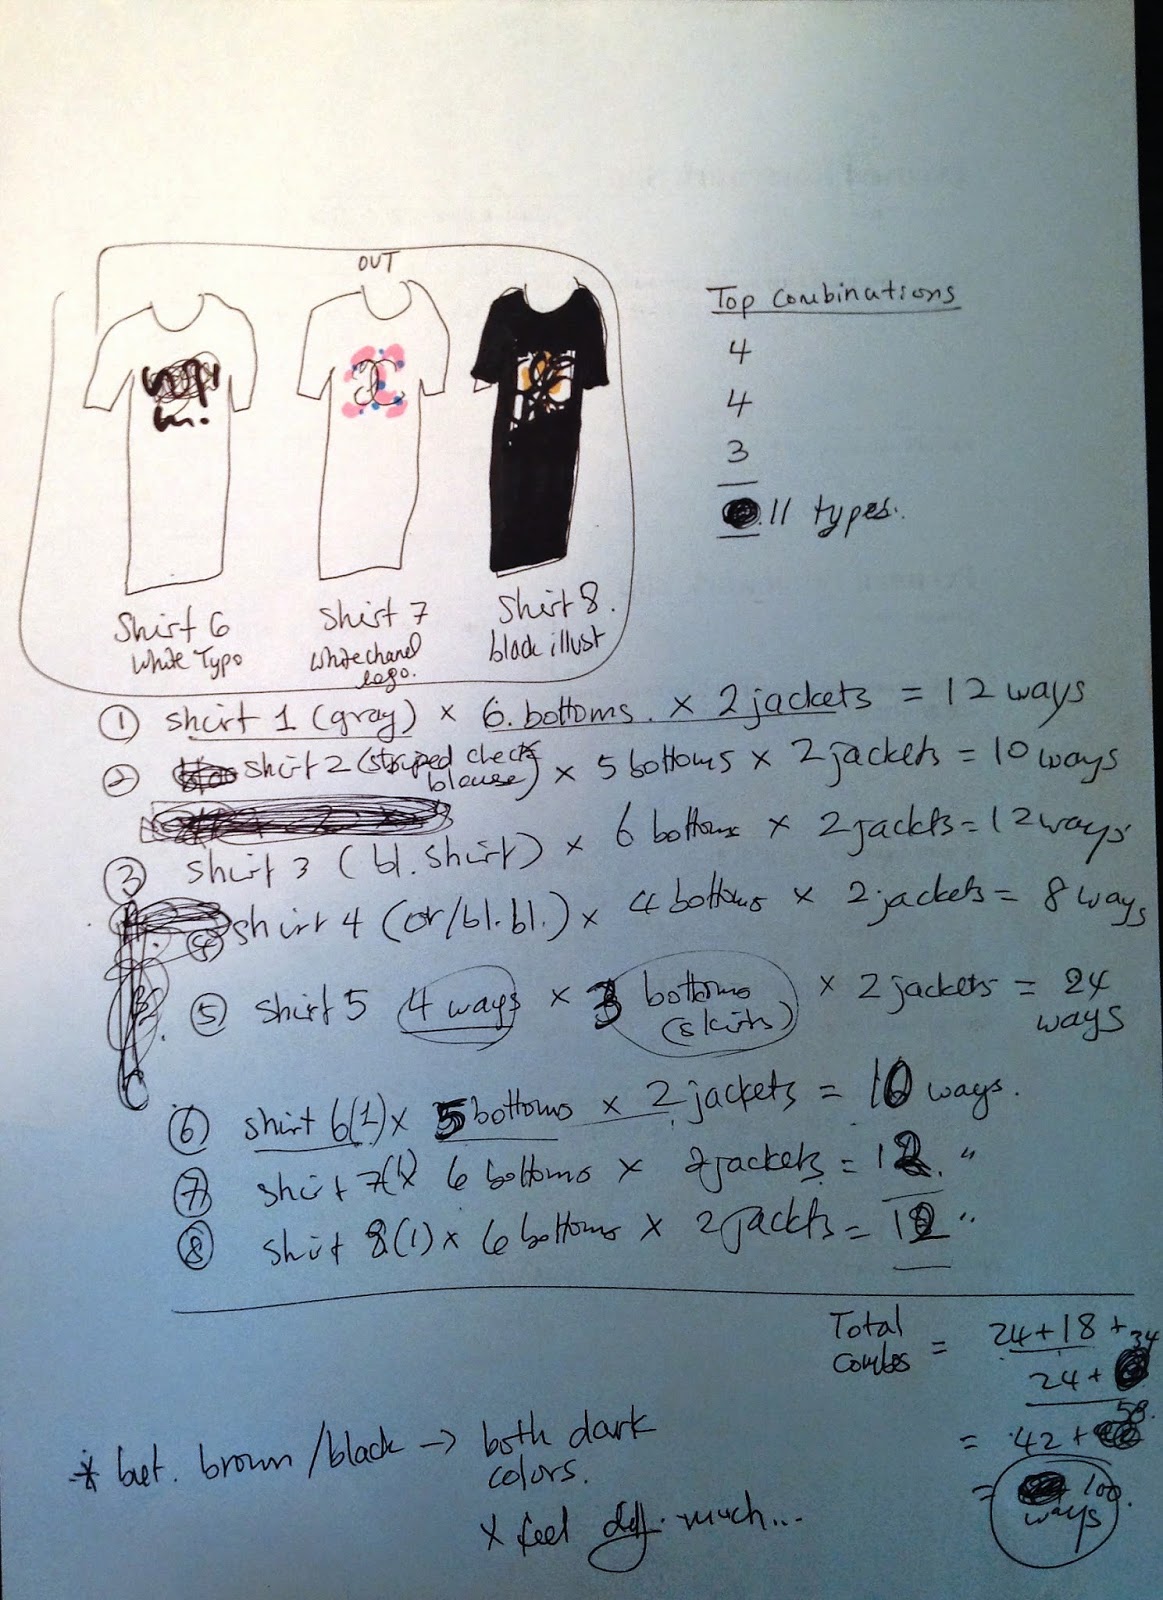 OUT
Shirt 6
White Typo
Shirt 7
White chanel
logo.
Shirt 8.
black illust
Top Combinations
4
4
3
11 types.
① shirt 1 (gray) × 6 bottoms × 2 jackets = 12 ways
② shirt 2 (striped check blouse) × 5 bottoms × 2 jackets = 10 ways
③ shirt 3 (bl. shirt) × 6 bottoms × 2 jackets = 12 ways
④ shirt 4 (or/bl. bl.) × 4 bottoms × 2 jackets = 8 ways
⑤ shirt 5 4 ways × 3 bottoms (skirts) × 2 jackets = 24 ways
⑥ shirt 6(1) × 5 bottoms × 2 jackets = 10 ways.
⑦ shirt 7(1) 6 bottoms × 2 jackets = 12 "
⑧ shirt 8(1) × 6 bottoms × 2 jackets = 12 "
Total combos = 24 + 18 +
24 + 34
= 42 + 58
= 100 ways
* but. brown/black → both dark
colors.
× feel diff. much...